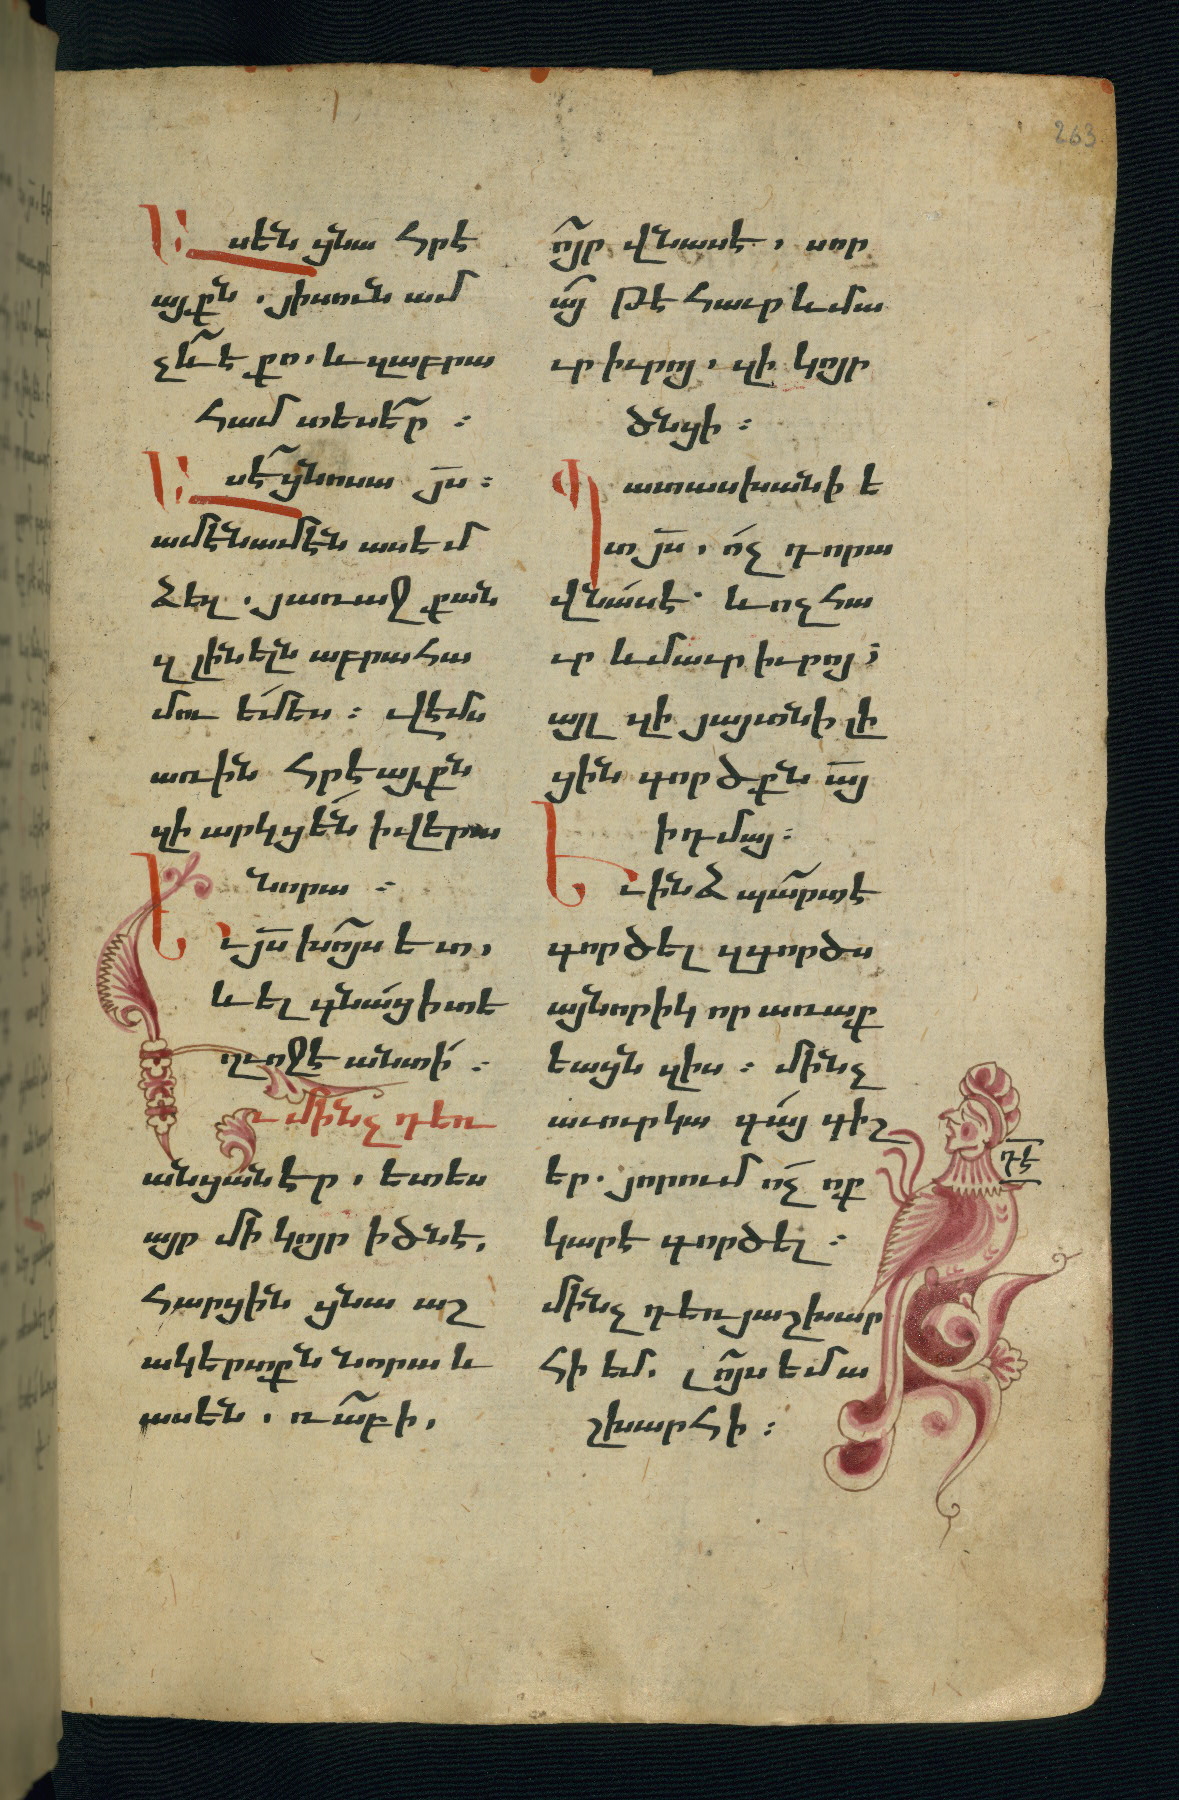 263
Ասեն ցնա հրէ
այքն . յիսուն ամ
չև̃ է քո, և զաբրա
համ տեսե̃ր :
Ասէ̃ ցնոսա յ̃ս :
ամէն ամէն ասեմ
ձեզ . յառաջ քան
զլինելն աբրահա
մու եմ ես : վէմս
առին հրէայքն
զի արկցեն ի վերա
նորա :
Եւ յ̃ս խո̃յս ետ,
և ել գնաց ի տե
ղւոջէ անտի :
Եւ մինչդեռ
անցանէր, ետես
այր մի կոյր ի ծնէ,
հարցին ցնա աշ
ակերտքն նորա և
ասեն, ռա̃բի,
ո̃յր վնաս է, սոր
ա̃յ թէ հաւր և մա
ւր իւրոյ, զի կոյր
ծնցի :
Պատասխանի ե
տ յ̃ս, ոչ դորա
վնաս է. և ոչ հա
ւր և մաւր իւրոյ ;
այլ զի յայտնի լի
ցին գործքն ա̃յ
ի դմայ :
Եւ ինձ պա̃րտ է
գործել զգործս
այնորիկ որ առաք
եացն զիս : մինչ
աւուր կա գայ գիշ
եր . յորում ոչ ոք
կարէ գործել :
մինչդեռ յաշխար
հի եմ. լո̃յս եմ ա
շխարհի :
դէ